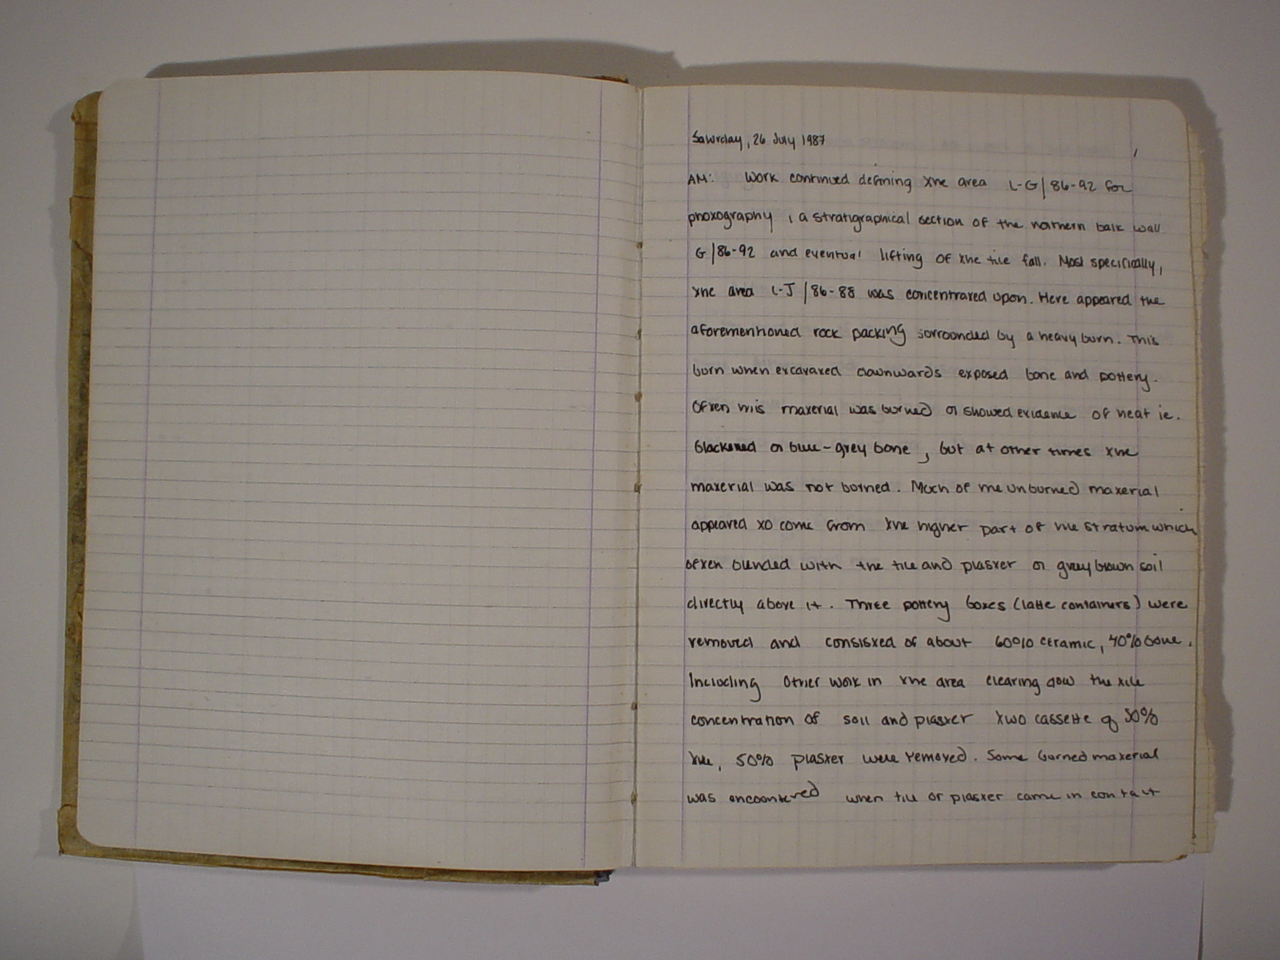 Saturday, 26 July 1987
AM: Work continued defining the area L-G/86-92 for
photography, a stratigraphical section of the northern balk wall
G/86-92 and eventual lifting of the tile fall. Most specifically,
the area L-J/86-88 was concentrated upon. Here appeared the
aforementioned rock packing sorrounded by a heavy burn. This
burn when excavated downwards exposed bone and pottery.
Often this material was burned or showed evidence of heat ie.
blackened or blue-grey bone, but at other times the
material was not burned. Much of the unburned material
appeared to come from the higher part of the stratum which
often blended with the tile and plaster or grey brown soil
directly above it. Three pottery boxes (latte containers) were
removed and consisted of about 60% ceramic, 40% bone.
Including other work in the area clearing the tile
concentration of soil and plaster two cassette of 50%
tile, 50% plaster were removed. Some burned material
was encountered when tile or plaster came in contact